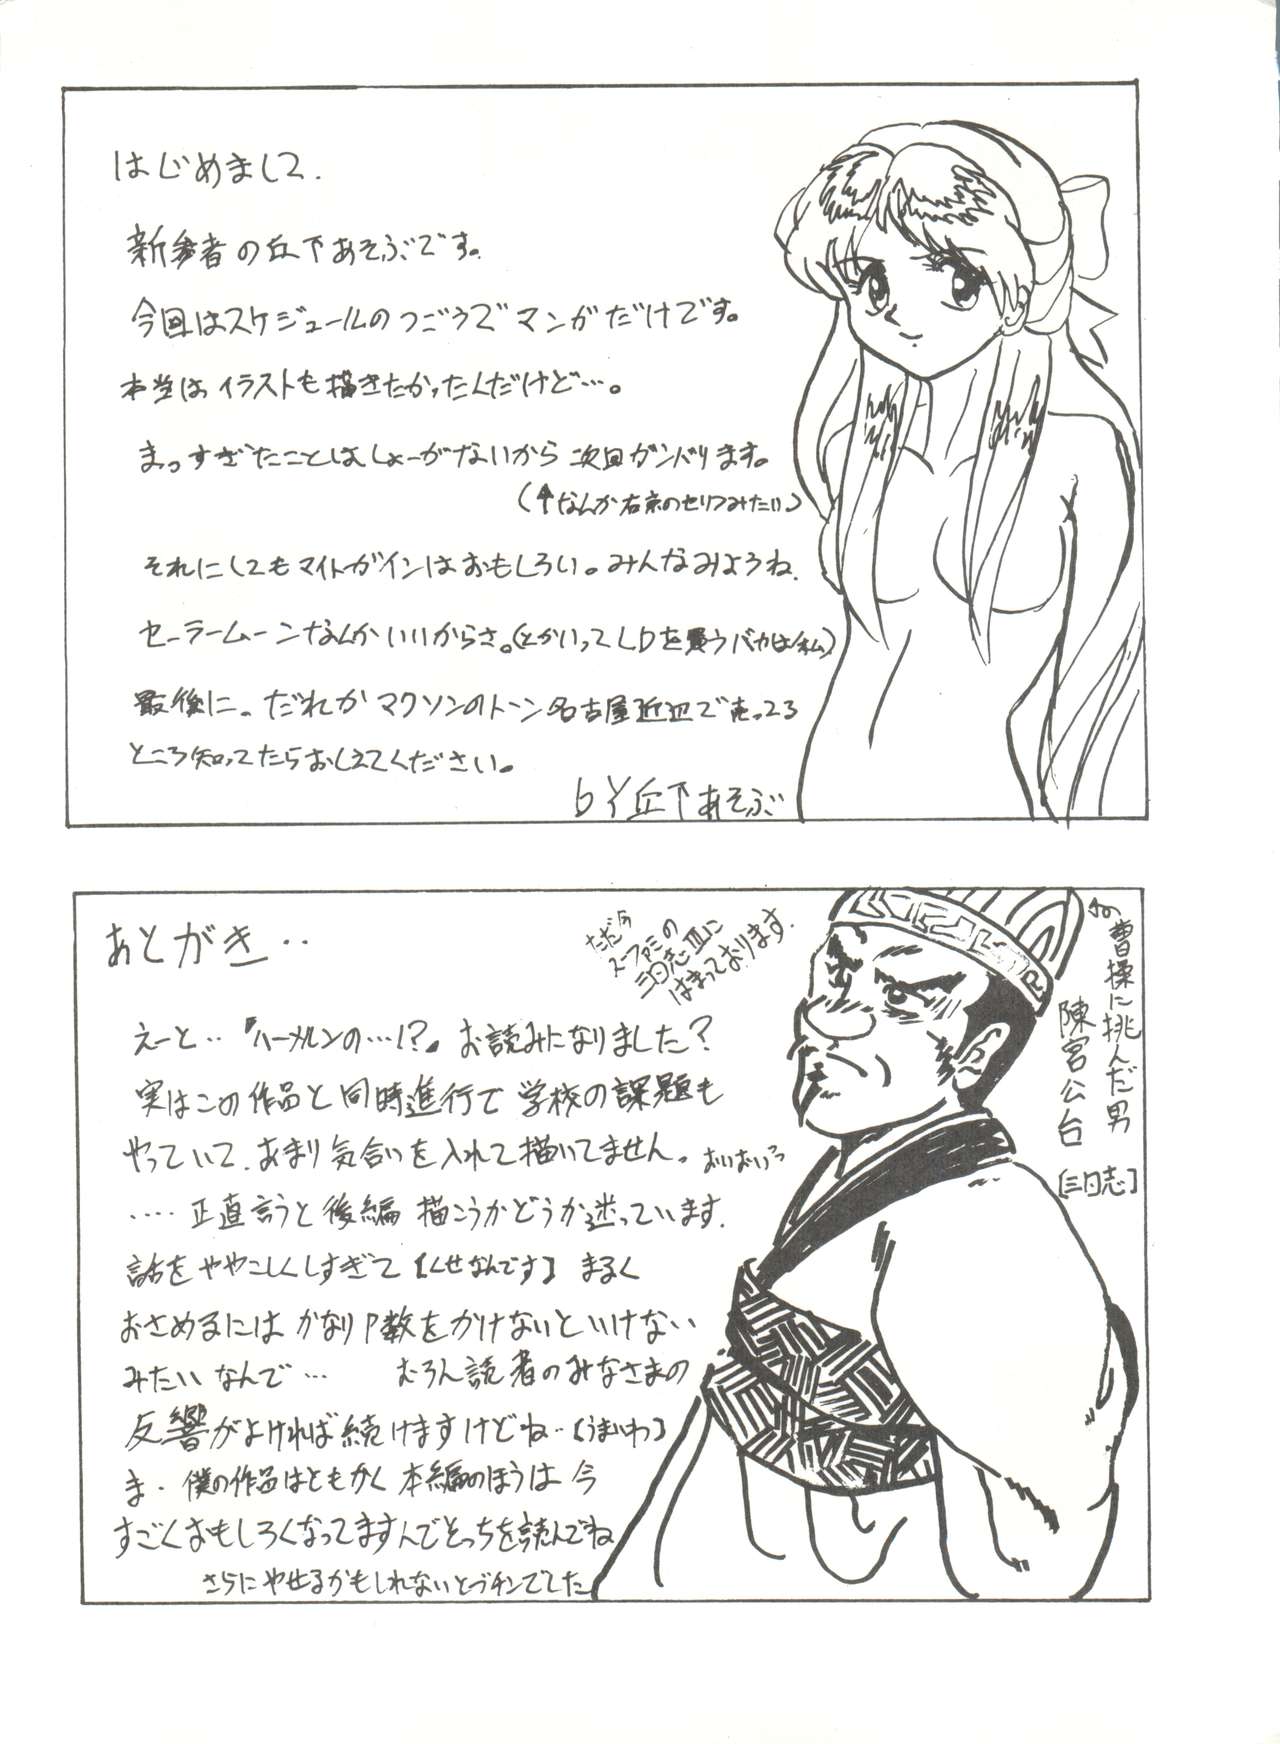 はじめまして.
新参者の丘下あそぶです。
今回はスケジュールのつごうでマンガだけです。
本当はイラストも描きたかったんだけど…。
まっすぎたことはしょーがないから次回ガンバります。
(↑なんか右京のセリフみたい)
それにしてもマイトガインはおもしろい。みんなみようね.
セーラームーンなんかいいからさ。(とかいってLDを買うバカは私)
最後に。だれかマクソンのトーン名古屋近辺で売ってる
ところ知ってたらおしえてください。
bY丘下あそぶ
あとがき‥
ただ今
スーファミの
三国志Ⅲに
はまっております.
曹操に挑んだ男
陳宮公台
[三国志]
えーと‥『ハーメルンの…!?』お読みになりました?
実はこの作品と同時進行で学校の課題も
やっていて、あまり気合いを入れて描いてません。おいおいっ
‥‥正直言うと後編描こうかどうか迷っています.
話をややこしくしすぎて【くせなんです】まるく
おさめるにはかなりP数をかけないといけない
みたいなんで… むろん読者のみなさまの
反響がよければ続けますけどね‥【うまいわ】
ま・僕の作品はともかく本編のほうは今
すごくおもしろくなってますんでそっちを読んでね
さらにやせるかもしれないとブチンでした